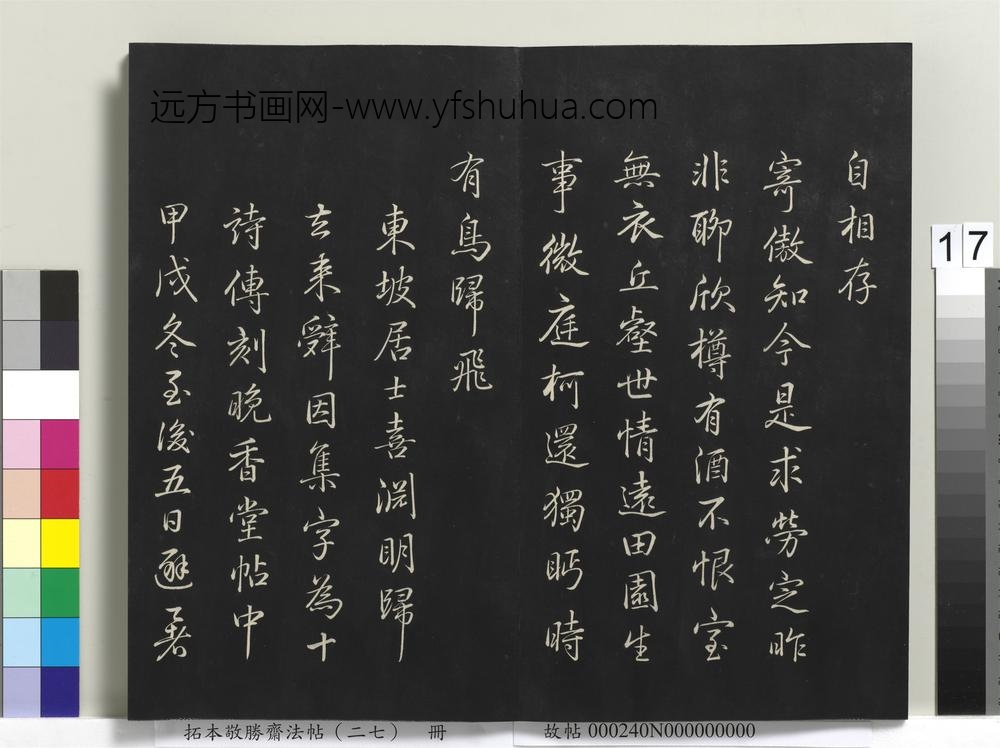 远方书画网-www.yfshuhua.com
自相存
寄傲知今是求勞定昨
非聊欣樽有酒不恨室
無衣丘壑世情遠田園生
事微庭柯還獨眄時
有鳥歸飛
東坡居士喜淵明歸
去来辭因集字為十
詩傳刻晚香堂帖中
甲戌冬至後五日避暑
17
拓本敬勝齋法帖（二七） 冊
故帖 000240N000000000